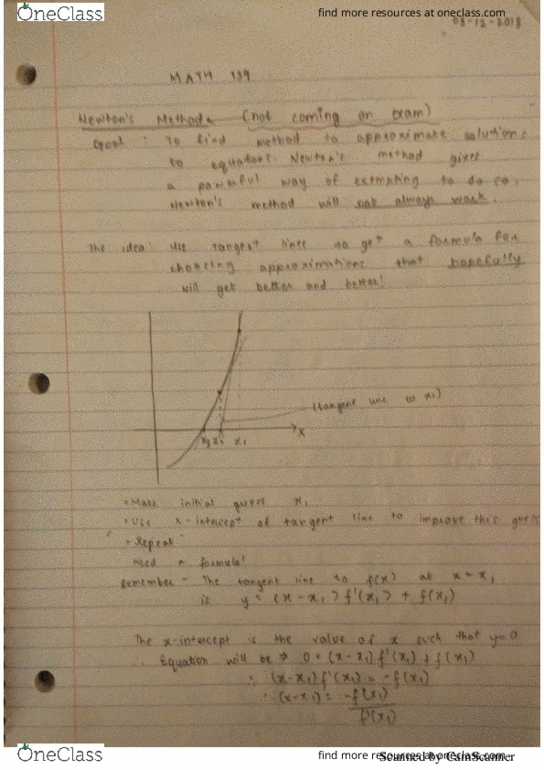 OneClass
find more resources at oneclass.com
03-12-2018
MATH 139
Newton's Method (not coming on exam)
Goal : To find method to approximate solutions
to equations. Newton's method gives
a powerful way of exempting to do so.
Newton's method will not always work.
The idea: Use tangent lines to get a formula for
choosing approximations that hopefully
will get better and better!
(tangent line to x1)
x3 x2 x1 x
Make initial guess x1
Use x-intercept of tangent line to improve this guess
Repeat
Need a formula!
Remember - The tangent line to f(x) at x = x1
is y = (x-x1) f'(x1) + f(x1)
The x-intercept is the value of x such that y=0
∴ Equation will be ⇒ 0 = (x-x1) f'(x1) + f(x1)
∴ (x-x1) f'(x1) = -f(x1)
∴ (x-x1) = -f(x1)
f'(x1)
OneClass
find more resources at oneclass.com
Scanned by CamScanner